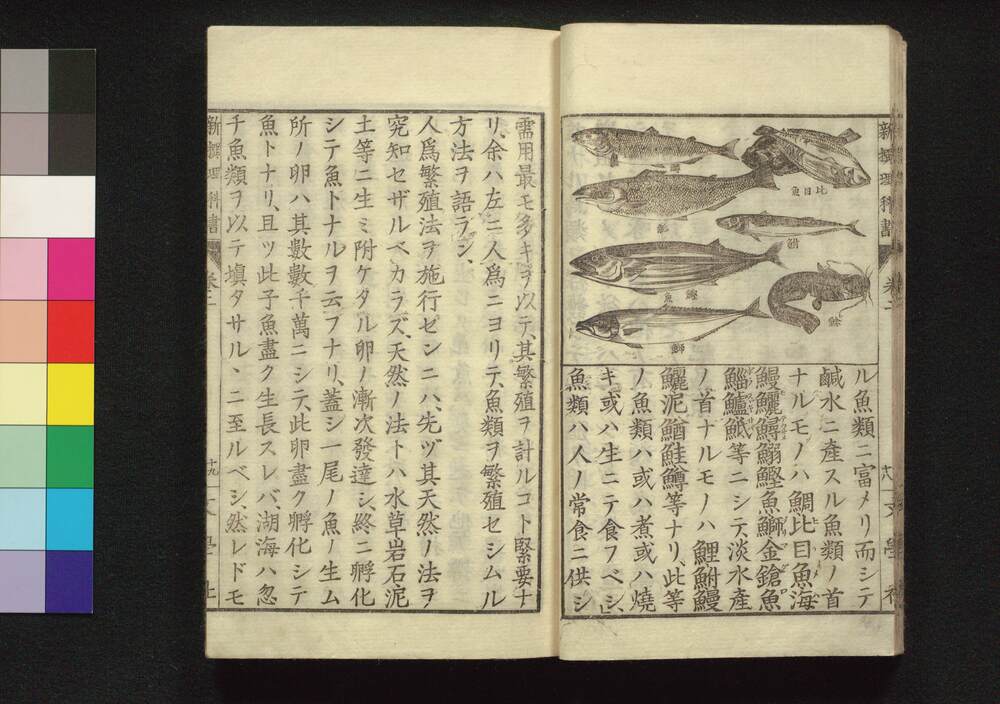 新撰理科書
卷二
文學社
比目魚
鮒
鯰
鰹魚
鰤
ル魚類ニ富メリ而シテ
鹹水ニ產スル魚類ノ首
ナルモノハ鯛比目魚海
鰻鱺鱘鰯鰹魚鰤金鎗魚
鯔鱸等ニシテ淡水產
ノ首ナルモノハ鯉鮒鰻
鱺泥鰌鮭鱒等ナリ、此等
ノ魚類ハ或ハ煮或ハ燒
キ或ハ生ニテ食フベシ、
魚類ハ人ノ常食ニ供シ
需用最モ多キヲ以テ、其繁殖ヲ計ルコト緊要ナ
リ、余ハ左ニ人爲ニヨリテ、魚類ヲ繁殖セシムル
方法ヲ語ラン、
人爲繁殖法ヲ施行センニハ、先ヅ其天然ノ法ヲ
究知セザルベカラズ、天然ノ法トハ水草岩石泥
土等ニ生ミ附ケタル卵ノ漸次發達シ、終ニ孵化
シテ魚トナルヲ云フナリ、蓋シ一尾ノ魚ノ生ム
所ノ卵ハ其數數千萬ニシテ、此卵盡ク孵化シテ
魚トナリ、且ツ此子魚盡ク生長スレバ、湖海ハ忽
チ魚類ヲ以テ塡タサルヽニ至ルベシ、然レドモ
新撰理科書
卷二
十九
文學社